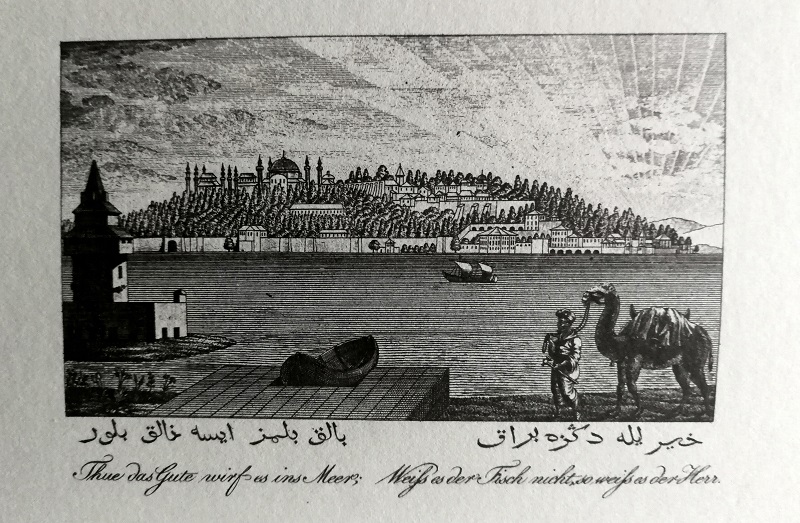 خير ايله دكزه براق بالق بلمز ايسه خالق بلور
Thue das Gute wirf es ins Meer; Weiß es der Fisch nicht, so weiß es der Herr.